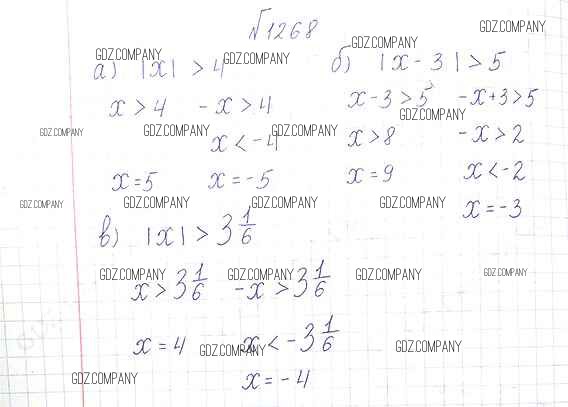 №1268
GDZ.COMPANY
GDZ.COMPANY
GDZ.COMPANY GDZ.COMPANY
а) |x| > 4 б) |x - 3| > 5
x > 4 - x > 4 x - 3 > 5 - x + 3 > 5
GDZ.COMPANY
GDZ.COMPANY GDZ.COMPANY GDZ.COMPANY
x < -4 x > 8 - x > 2
x = 5 x = -5 x = 9 x < -2
GDZ.COMPANY GDZ.COMPANY GDZ.COMPANY GDZ.COMPANY
x = -3
в) |x| > 3 1/6
GDZ.COMPANY GDZ.COMPANY GDZ.COMPANY GDZ.COMPANY
x > 3 1/6 - x > 3 1/6
x = 4 x < -3 1/6
GDZ.COMPANY GDZ.COMPANY
GDZ.COMPANY
x = -4